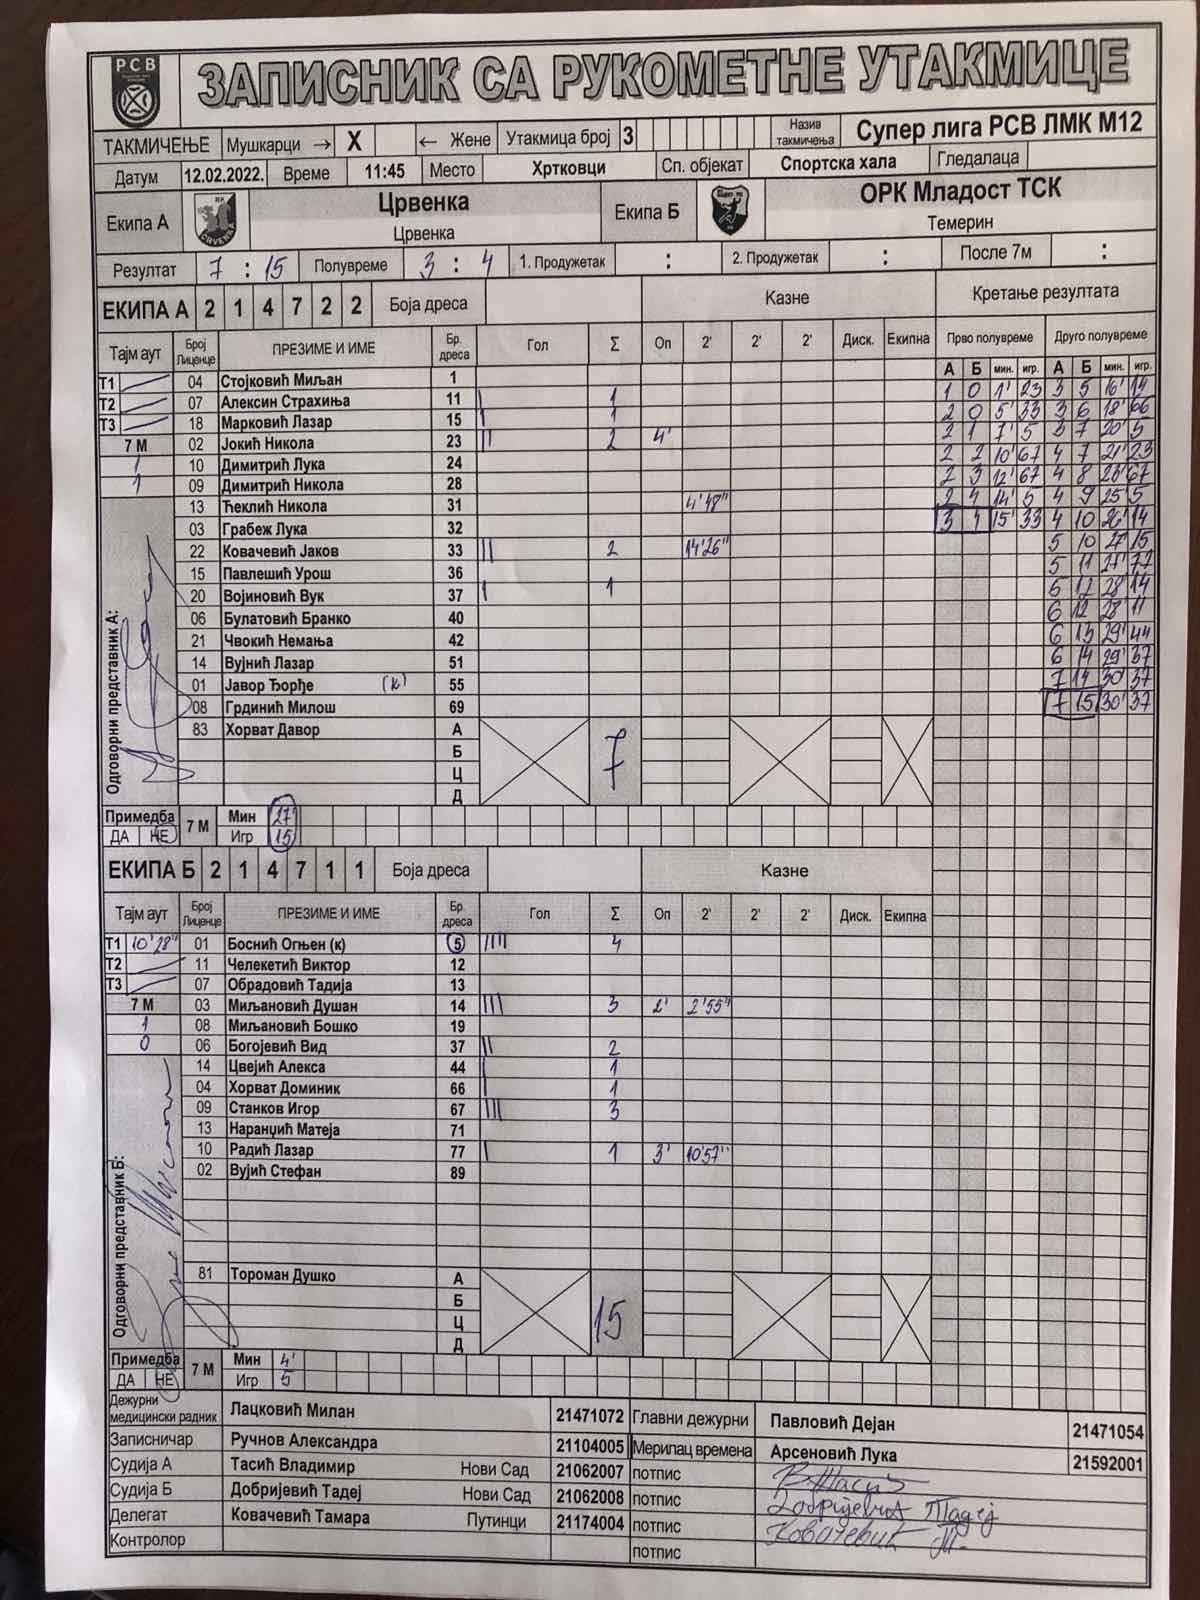 РСВ
ЗАПИСНИК СА РУКОМЕТНЕ УТАКМИЦЕ
ТАКМИЧЕЊЕ Мушкарци → X ← Жене Утакмица број 3 Назив такмичења Супер лига РСВ ЛМК М12
Датум 12.02.2022. Време 11:45 Место Хртковци Сп. објекат Спортска хала Гледалаца
Екипа А Црвенка Црвенка Екипа Б ОРК Младост ТСК Темерин
Резултат 7 : 15 Полувреме 3 : 4 1. Продужетак : 2. Продужетак : После 7м :
ЕКИПА А 2 1 4 7 2 2 Боја дреса Казне Кретање резултата
Тајм аут Број Лиценце ПРЕЗИМЕ И ИМЕ Бр. дреса Гол Σ Оп 2' 2' 2' Диск. Екипна Прво полувреме Друго полувреме
А Б мин. игр. А Б мин. игр.
Т1 04 Стојковић Миљан 1 1 0 1' 23 3 5 16' 14
Т2 07 Алексин Страхиња 11 | 1 2 0 5' 33 3 6 18' 66
Т3 18 Марковић Лазар 15 | 1 2 1 7' 5 3 7 20' 5
7 М 02 Јокић Никола 23 || 2 4' 2 2 10' 67 4 7 21' 23
1 10 Димитрић Лука 24 2 3 12' 67 4 8 67
1 09 Димитрић Никола 28 2 4 14' 5 4 9 25' 5
13 Ћеклић Никола 31 4'48" 3 4 15' 33 4 10 26' 14
03 Грабеж Лука 32 5 10 27' 15
22 Ковачевић Јаков 33 || 2 14'26" 5 11 27' 77
15 Павлешић Урош 36 6 12 28' 14
20 Војиновић Вук 37 | 1 6 12 28' 11
06 Булатовић Бранко 40 6 13 29' 44
21 Чвокић Немања 42 6 14 29' 37
14 Вујнић Лазар 51 7 14 30' 37
01 Јавор Ђорђе (к) 55 7 15 30' 37
08 Грдинић Милош 69
83 Хорват Давор А 7
Б
Ц
Д
Одговорни представник А:
Примедба ДА НЕ 7 М Мин 27'
Игр 15
ЕКИПА Б 2 1 4 7 1 1 Боја дреса Казне
Тајм аут Број Лиценце ПРЕЗИМЕ И ИМЕ Бр. дреса Гол Σ Оп 2' 2' 2' Диск. Екипна
Т1 10'28" 01 Боснић Огњен (к) 5 |||| 4
Т2 11 Челекетић Виктор 12
Т3 07 Обрадовић Тадија 13
7 М 03 Миљановић Душан 14 ||| 3 2' 2'55"
1 08 Миљановић Бошко 19
0 06 Богојевић Вид 37 || 2
14 Цвејић Алекса 44 | 1
04 Хорват Доминик 66 | 1
09 Станков Игор 67 ||| 3
13 Наранџић Матеја 71
10 Радић Лазар 77 | 1 3' 10'57"
02 Вујић Стефан 89
81 Тороман Душко А 15
Б
Ц
Д
Одговорни представник Б:
Примедба ДА НЕ 7 М Мин 4'
Игр 5
Дежурни медицински радник Лацковић Милан 21471072 Главни дежурни Павловић Дејан 21471054
Записничар Ручнов Александра 21104005 Мерилац времена Арсеновић Лука 21592001
Судија А Тасић Владимир Нови Сад 21062007 потпис В Тасић
Судија Б Добријевић Тадеј Нови Сад 21062008 потпис Добријевић Тадеј
Делегат Ковачевић Тамара Путинци 21174004 потпис Ковачевић Т.
Контролор потпис